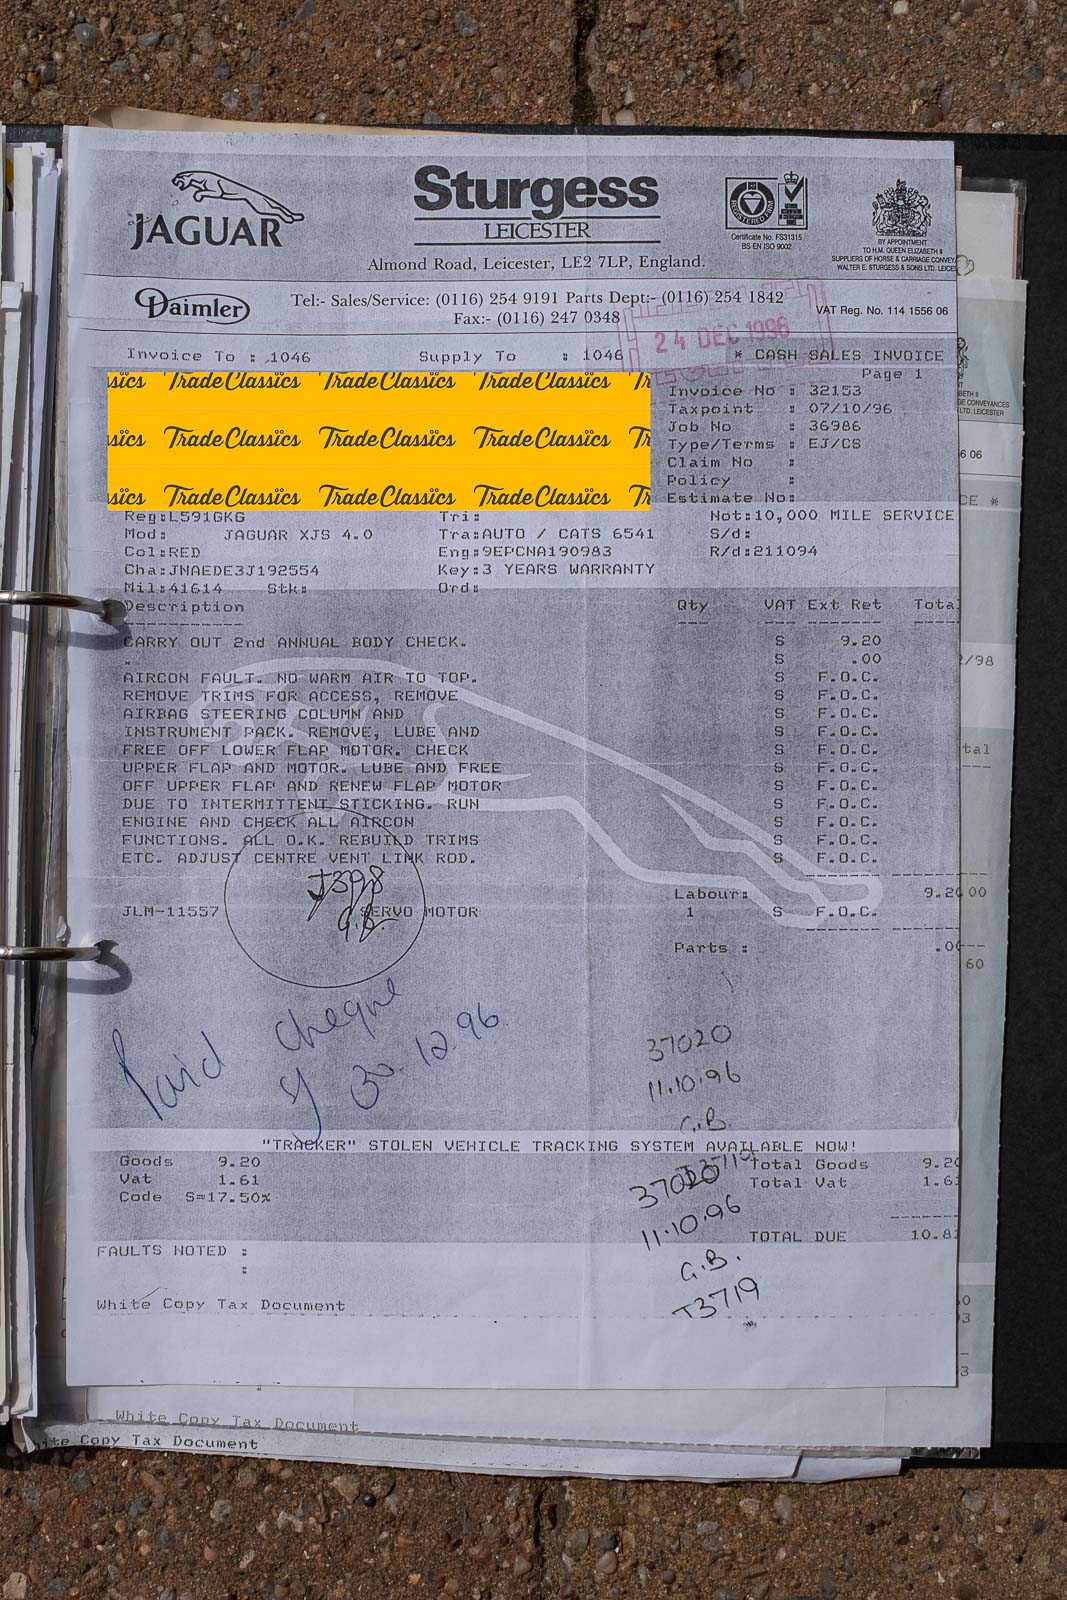 JAGUAR
Sturgess
LEICESTER
REGISTERED FIRM
Certificate No. FS31315
BS EN ISO 9002
BY APPOINTMENT
TO H.M. QUEEN ELIZABETH II
SUPPLIERS OF HORSE & CARRIAGE CONVEY
WALTER E. STURGESS & SONS LTD. LEICES
Almond Road, Leicester, LE2 7LP, England.
Daimler
Tel:- Sales/Service: (0116) 254 9191 Parts Dept:- (0116) 254 1842
Fax:- (0116) 247 0348
VAT Reg. No. 114 1556 06
24 DEC 1996
Invoice To : 1046 Supply To : 1046 * CASH SALES INVOICE
Page 1
TradeClassics TradeClassics TradeClassics
TradeClassics TradeClassics TradeClassics
TradeClassics TradeClassics TradeClassics
Invoice No : 32153
Taxpoint : 07/10/96
Job No : 36986
Type/Terms : EJ/CS
Claim No :
Policy :
Estimate No:
Reg:L591GKG Tri: Not:10,000 MILE SERVICE
Mod: JAGUAR XJS 4.0 Tra:AUTO / CATS 6541 S/d:
Col:RED Eng:9EPCNA190983 R/d:211094
Cha:JNAEDE3J192554 Key:3 YEARS WARRANTY
Mil:41614 Stk: Ord:
Description Qty VAT Ext Ret Total
CARRY OUT 2nd ANNUAL BODY CHECK. S 9.20
. S .00
AIRCON FAULT. NO WARM AIR TO TOP. S F.O.C.
REMOVE TRIMS FOR ACCESS, REMOVE S F.O.C.
AIRBAG STEERING COLUMN AND S F.O.C.
INSTRUMENT PACK. REMOVE, LUBE AND S F.O.C.
FREE OFF LOWER FLAP MOTOR. CHECK S F.O.C.
UPPER FLAP AND MOTOR. LUBE AND FREE S F.O.C.
OFF UPPER FLAP AND RENEW FLAP MOTOR S F.O.C.
DUE TO INTERMITTENT STICKING. RUN S F.O.C.
ENGINE AND CHECK ALL AIRCON S F.O.C.
FUNCTIONS. ALL O.K. REBUILD TRIMS S F.O.C.
ETC. ADJUST CENTRE VENT LINK ROD. S F.O.C.
J398
G.B.
Labour: 9.20
JLM-11557 SERVO MOTOR 1 S F.O.C.
Parts : .00
Paid cheque
30.12.96
37020
11.10.96
G.B.
"TRACKER" STOLEN VEHICLE TRACKING SYSTEM AVAILABLE NOW!
Goods 9.20 Total Goods 9.20
Vat 1.61 Total Vat 1.61
Code S=17.50%
37020
11.10.96
TOTAL DUE 10.81
G.B.
T3719
FAULTS NOTED :
:
White Copy Tax Document
White Copy Tax Document
ite Copy Tax Document